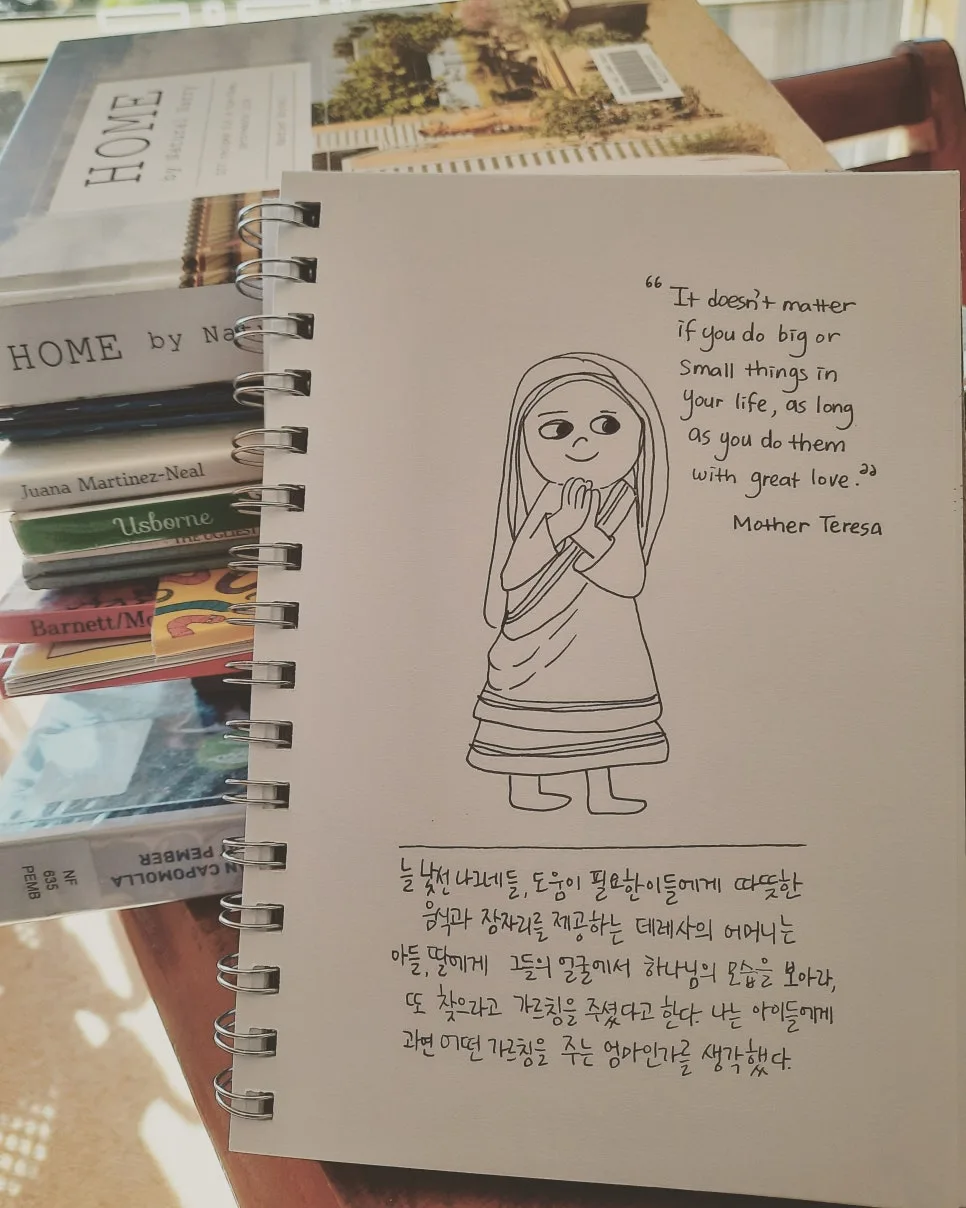 HOME
HOME by
Juana Martinez-Neal
Usborne
THE UGLIEST
Barnett/
NF
635
PEMB
CAPOMOLLA
PEMBER
“ It doesn't matter
if you do big or
small things in
your life, as long
as you do them
with great love.”
Mother Teresa
늘 낯선 나그네들, 도움이 필요한이들에게 따뜻한
음식과 잠자리를 제공하는 데레사의 어머니는
아들, 딸에게 그들의 얼굴에서 하나님의 모습을 보아라,
또 찾으라고 가르침을 주셨다고 한다. 나는 아이들에게
과연 어떤 가르침을 주는 엄마인가를 생각했다.